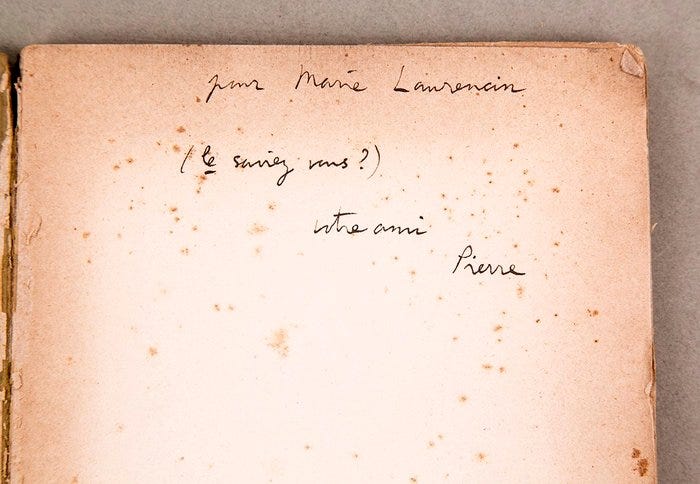 pour Marie Laurencin
(le saviez vous?)
votre ami
Pierre